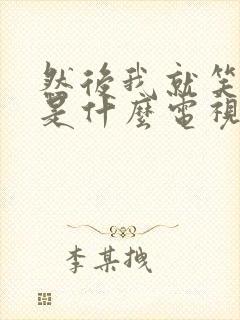 然後我就笑
是什麼電視
李某拽